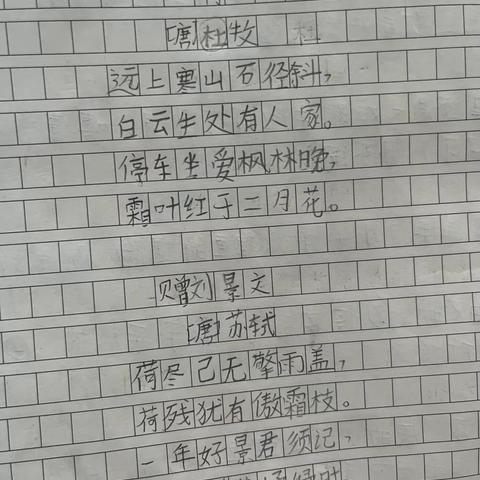 [唐]杜牧
远上寒山石径斜,
白云生处有人家。
停车坐爱枫林晚,
霜叶红于二月花。
赠刘景文
[唐]苏轼
荷尽已无擎雨盖,
荷残犹有傲霜枝。
一年好景君须记,
绿